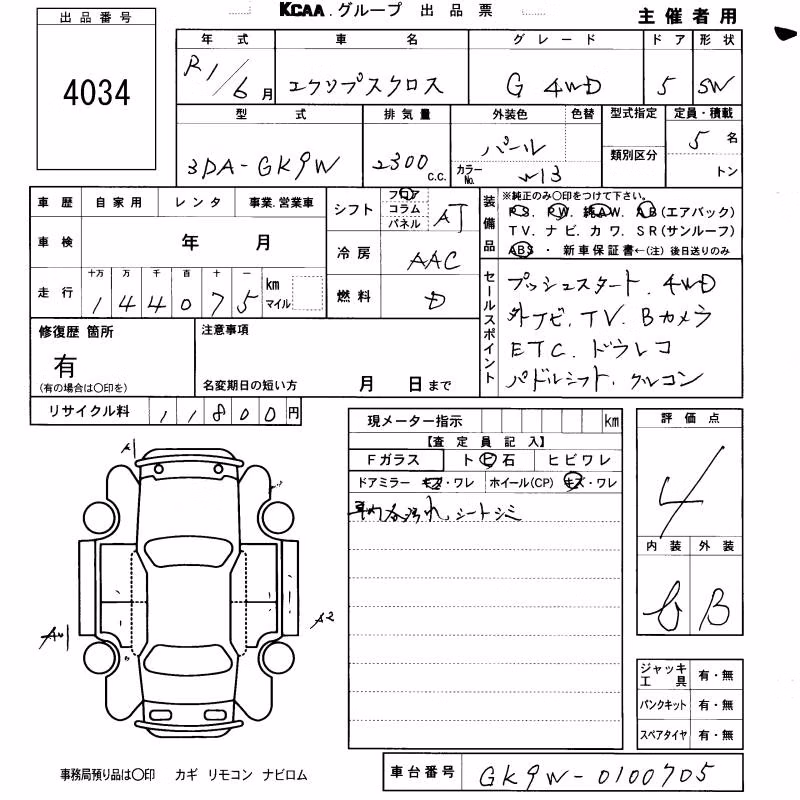 KCAA.グループ 出品票
主催者用
出品番号
4034
年式 車名 グレード ドア 形状
R1/6月 エクリプスクロス G 4WD 5 SW
型式 排気量 外装色 色替 型式指定 定員・積載
3DA-GK9W 2300 C.C. パール 類別区分 5名
カラーNo. W13 トン
車歴 自家用 レンタ 事業.営業車
車検 年 月
走行 十万 万 千 百 十 一 km マイル
1 4 4 0 7 5
シフト フロア コラム パネル AT
冷房 AAC
燃料 D
装備品 ※純正のみ○印をつけて下さい。
PS. PW. 純AW. AB(エアバック)
TV. ナビ. カワ. SR(サンルーフ)
ABS ・ 新車保証書←(注) 後日送りのみ
セールスポイント
プッシュスタート. 4WD
外ナビ. TV. Bカメラ
ETC. ドラレコ
パドルシフト. クルコン
修復歴 箇所
有
(有の場合は○印を)
注意事項
名変期日の短い方 月 日まで
リサイクル料 11800円
現メーター指示 km
【査定員記入】
Fガラス ト ビ 石 ヒビワレ
ドアミラー キズ・ワレ ホイール(CP) キズ・ワレ
車内各汚れ、シートシミ
評価点
4
内装 外装
B
A1
A2
ジャッキ工具 有・無
パンクキット 有・無
スペアタイヤ 有・無
事務局預り品は○印 カギ リモコン ナビロム
車台番号 GK9W-0100705